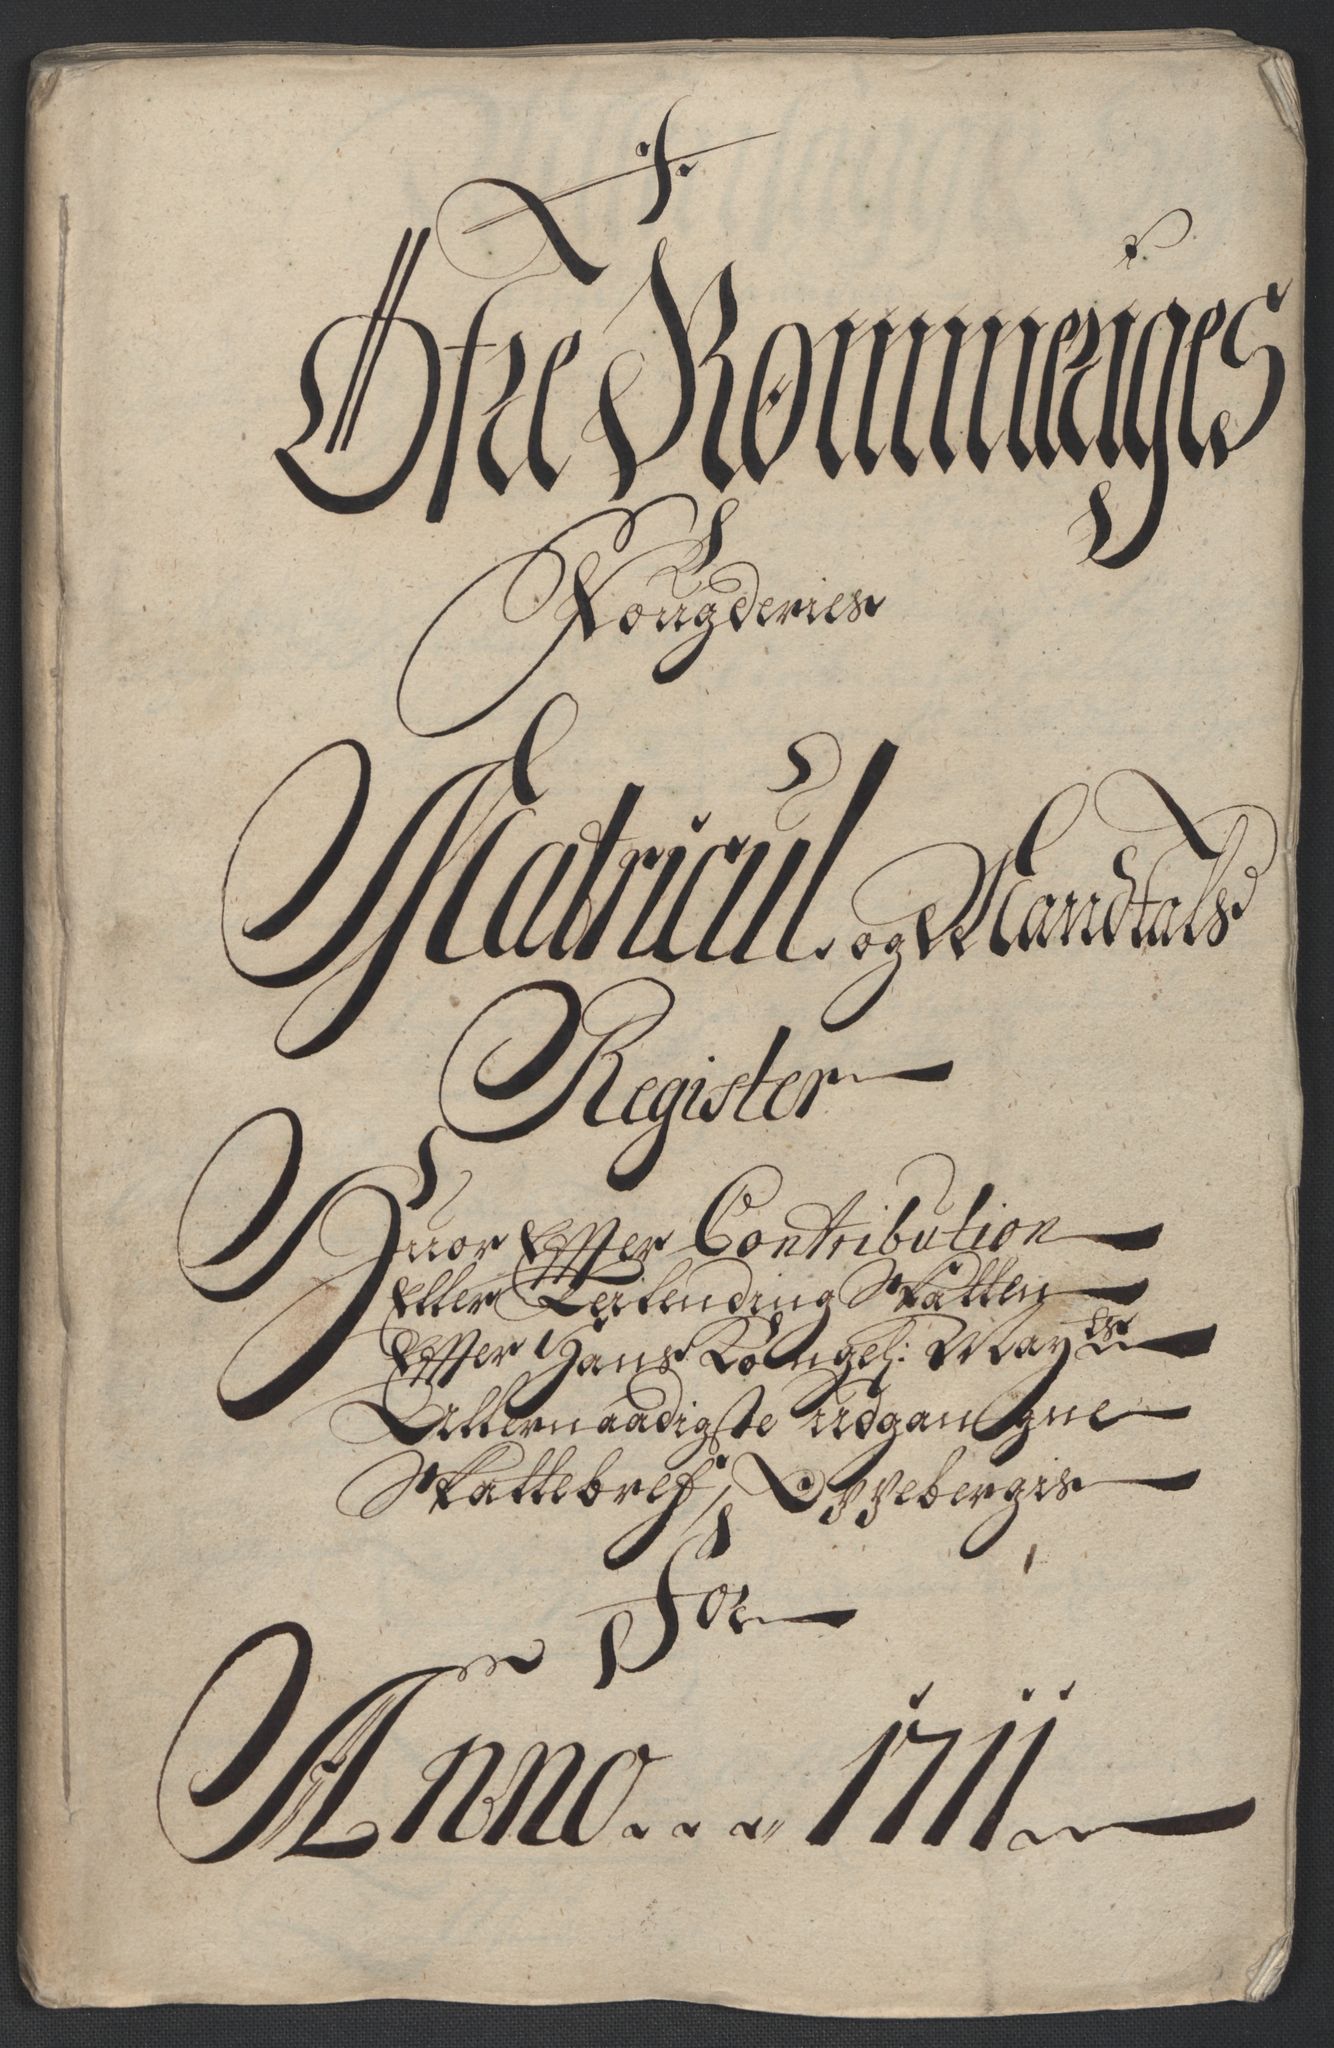 Øfre Rommeriges
Fougderies
Matricul og Mandtals
Register
Huor Effter Contribution
Eller Leilending Skatten
Effter Hans Kongel: Mayts
Allernaadigste udgangne
Skattebref, Opebergis
For
Anno . . . 1711